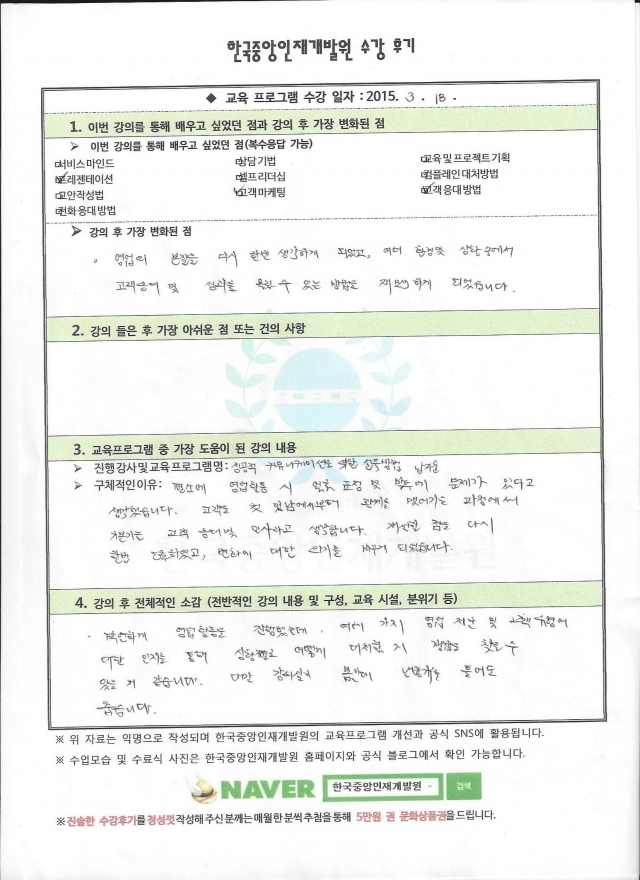 한국중앙인재개발원 수강 후기
◆ 교육 프로그램 수강 일자 : 2015. 3. 18.
1. 이번 강의를 통해 배우고 싶었던 점과 강의 후 가장 변화된 점
➢ 이번 강의를 통해 배우고 싶었던 점(복수응답 가능)
□서비스마인드 □상담기법 □교육 및 프로젝트 기획
☑프레젠테이션 □셀프리더십 □컴플레인 대처방법
□교안작성법 ☑고객마케팅 ☑고객응대방법
□전화응대방법
➢ 강의 후 가장 변화된 점
· 영업의 본질을 다시 한번 생각하게 되었고, 여러 환경및 상황 속에서
고객응대 및 있는 방법을 되었습니다.
2. 강의 들은 후 가장 아쉬운 점 또는 건의 사항
3. 교육프로그램 중 가장 도움이 된 강의 내용
➢ 진행강사및교육프로그램명: 성공적 커뮤니케이션을 위한
➢ 구체적인이유: 평소에 영업활동 시 표정 및 문제가 있다고
생각했습니다. 고객을 첫 만남에서부터 관계를 맺어가는 과정에서
기본기는 고객 응대및 인사라고 생각합니다. 개선할 점을 다시
한번 변화에 대한 되었습니다.
4. 강의 후 전체적인 소감 (전반적인 강의 내용 및 구성, 교육 시설, 분위기 등)
· 막연하게 영업활동을 진행했는데, 여러 가지 영업 및 고객유형에
대한 인지를 통해 상황별로 어떻게 대처할 지 정답을 찾을 수
있을 거 같습니다. 다만 강의실의
좋습니다.
※ 위 자료는 익명으로 작성되며 한국중앙인재개발원의 교육프로그램 개선과 공식 SNS에 활용됩니다.
※ 수업모습 및 수료식 사진은 한국중앙인재개발원 홈페이지와 공식 블로그에서 확인 가능합니다.
NAVER 한국중앙인재개발원 검색
※진솔한 수강후기를 정성껏 작성해 주신 분께는 매월 한 분씩 추첨을 통해 5만원 권 문화상품권을 드립니다.